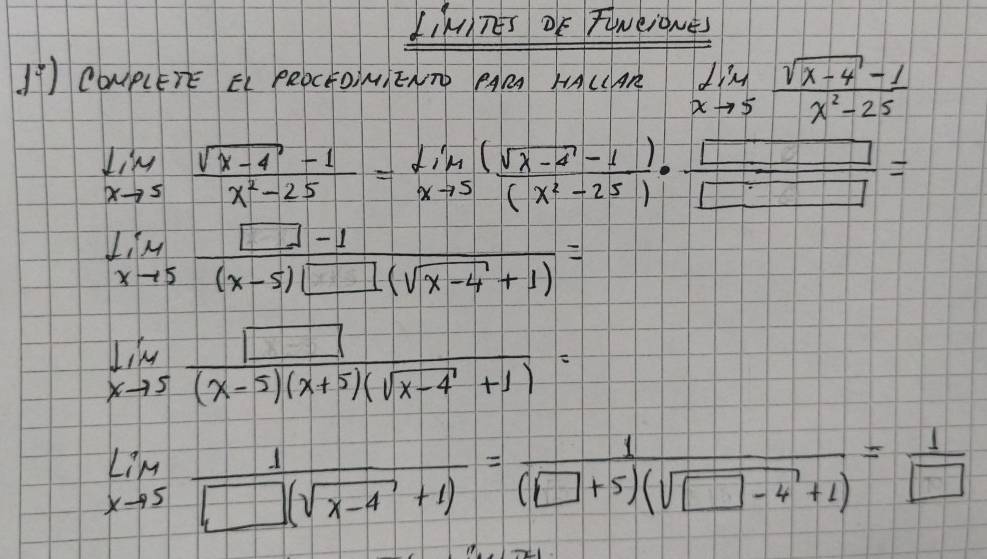 LÍMITES DE FUNCIONES
1º) COMPLETE EL PROCEDIMIENTO PARA HALLAR Lím x→5 (√(x-4) - 1)/(x² - 25)
Lím x→5 (√(x-4) - 1)/(x² - 25) = Lím x→5 (√(x-4) - 1)/(x² - 25) • □/□ =
Lím x→5 (□ - 1)/((x-5) □ (√(x-4) + 1)) =
Lím x→5 □/((x-5)(x+5)(√(x-4) + 1)) =
Lím x→5 1/(□(√(x-4) + 1)) = 1/((□+5)(√(□-4) + 1)) = 1/□